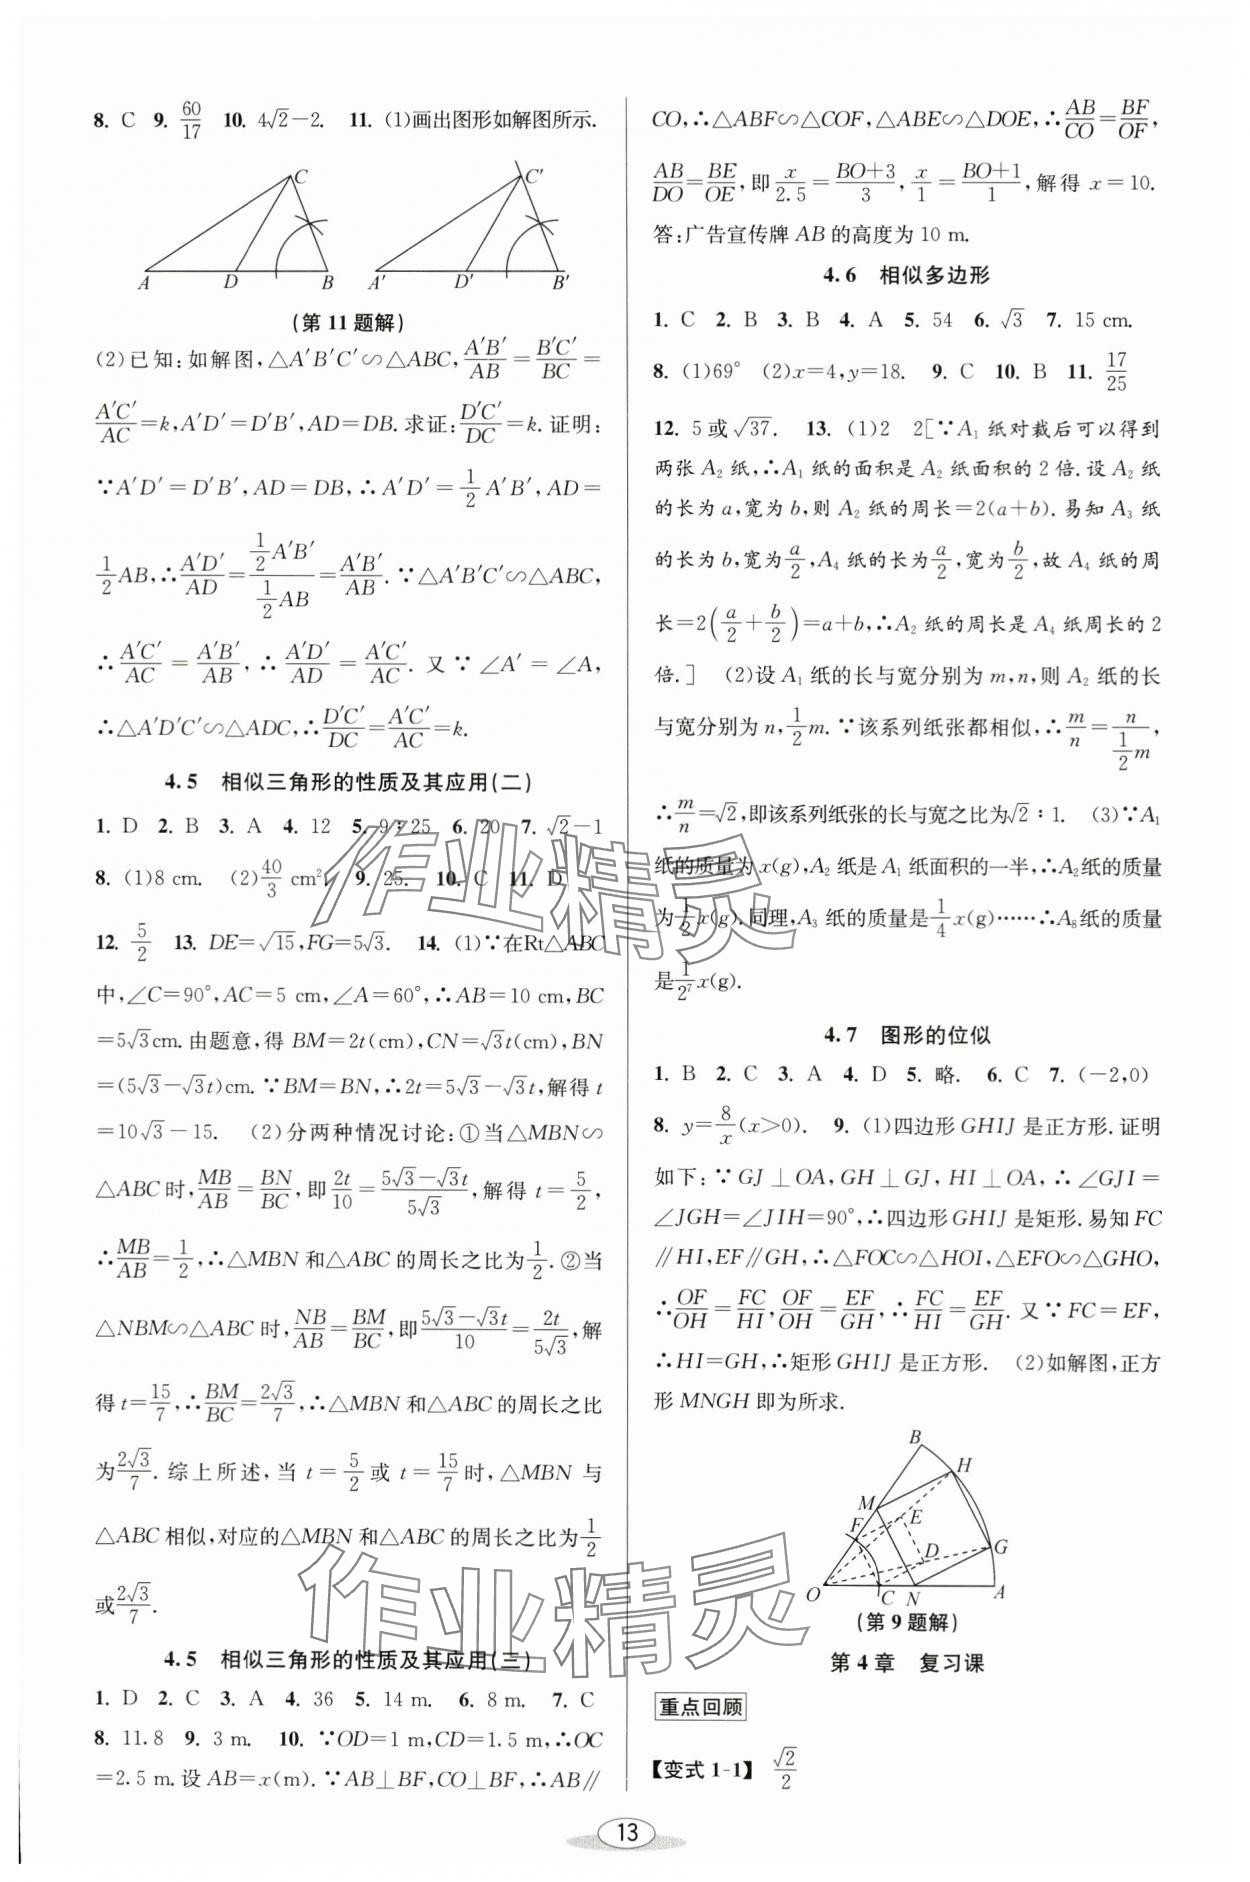 8. C 9. 60/17 10. 4√2－2. 11. (1)画出图形如解图所示.
C C′
A D B A′ D′ B′
(第 11 题解)
(2)已知:如解图,△A′B′C′∽△ABC,A′B′/AB=B′C′/BC=
A′C′/AC=k,A′D′=D′B′,AD=DB.求证:D′C′/DC=k.证明:
∵A′D′=D′B′,AD=DB,∴A′D′=1/2 A′B′,AD=
1/2 AB,∴A′D′/AD=(1/2 A′B′)/(1/2 AB)=A′B′/AB.∵△A′B′C′∽△ABC,
∴A′C′/AC=A′B′/AB,∴A′D′/AD=A′C′/AC.又∵∠A′=∠A,
∴△A′D′C′∽△ADC,∴D′C′/DC=A′C′/AC=k.
4.5 相似三角形的性质及其应用(二)
1. D 2. B 3. A 4. 12 5. 9∶25 6. 20 7. √2－1
8. (1)8 cm. (2)40/3 cm². 9. 25. 10. C 11. D
12. 5/2 13. DE=√15,FG=5√3. 14. (1)∵在Rt△ABC
中,∠C=90°,AC=5 cm,∠A=60°,∴AB=10 cm,BC
=5√3cm.由题意,得 BM=2t(cm),CN=√3t(cm),BN
=(5√3－√3t)cm.∵BM=BN,∴2t=5√3－√3t,解得 t
=10√3－15. (2)分两种情况讨论:①当△MBN∽
△ABC时,MB/AB=BN/BC,即2t/10=(5√3－√3t)/5√3,解得 t=5/2,
∴MB/AB=1/2,∴△MBN 和△ABC 的周长之比为1/2.②当
△NBM∽△ABC 时,NB/AB=BM/BC,即(5√3－√3t)/10=2t/5√3,解
得 t=15/7,∴BM/BC=2√3/7,∴△MBN 和△ABC 的周长之比
为2√3/7.综上所述,当 t=5/2 或 t=15/7时,△MBN 与
△ABC 相似,对应的△MBN 和△ABC 的周长之比为1/2
或2√3/7.
4.5 相似三角形的性质及其应用(三)
1. D 2. C 3. A 4. 36 5. 14 m. 6. 8 m. 7. C
8. 11.8 9. 3 m. 10. ∵OD=1 m,CD=1.5 m,∴OC
=2.5 m.设 AB=x(m).∵AB⊥BF,CO⊥BF,∴AB∥
CO,∴△ABF∽△COF,△ABE∽△DOE,∴AB/CO=BF/OF,
AB/DO=BE/OE,即x/2.5=(BO+3)/3,x/1=(BO+1)/1,解得 x=10.
答:广告宣传牌 AB 的高度为 10 m.
4.6 相似多边形
1. C 2. B 3. B 4. A 5. 54 6. √3 7. 15 cm.
8. (1)69° (2)x=4,y=18. 9. C 10. B 11. 17/25
12. 5或√37. 13. (1)2 2[∵A₁ 纸对裁后可以得到
两张 A₂ 纸,∴A₁ 纸的面积是 A₂ 纸面积的 2 倍.设 A₂ 纸
的长为 a,宽为 b,则 A₂ 纸的周长=2(a+b).易知 A₃ 纸
的长为 b,宽为a/2,A₄ 纸的长为a/2,宽为b/2,故 A₄ 纸的周
长=2(a/2+b/2)=a+b,∴A₂ 纸的周长是 A₄ 纸周长的 2
倍.] (2)设 A₁ 纸的长与宽分别为 m,n,则 A₂ 纸的长
与宽分别为 n,1/2 m.∵该系列纸张都相似,∴m/n=n/(1/2 m),
∴m/n=√2,即该系列纸张的长与宽之比为√2∶1. (3)∵A₁
纸的质量为 x(g),A₂ 纸是 A₁ 纸面积的一半,∴A₂纸的质量
为1/2 x(g).同理,A₃ 纸的质量是1/4 x(g)……∴A₈纸的质量
是1/2⁷ x(g).
4.7 图形的位似
1. B 2. C 3. A 4. D 5. 略. 6. C 7. (－2,0)
8. y=8/x(x>0). 9. (1)四边形 GHIJ 是正方形.证明
如下:∵GJ⊥OA,GH⊥GJ,HI⊥OA,∴∠GJI=
∠JGH=∠JIH=90°,∴四边形 GHIJ 是矩形.易知 FC
∥HI,EF∥GH,∴△FOC∽△HOI,△EFO∽△GHO,
∴OF/OH=FC/HI,OF/OH=EF/GH,∴FC/HI=EF/GH.又∵FC=EF,
∴HI=GH,∴矩形 GHIJ 是正方形. (2)如解图,正方
形 MNGH 即为所求.
B
H
M
F E
D G
O C N A
(第 9 题解)
第 4 章 复习课
重点回顾
【变式 1-1】 √2/2
13
作业精灵
作业精灵